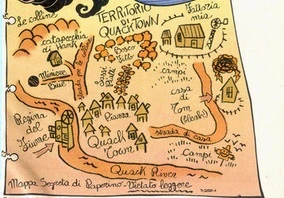 TERRITORIO
di
QUACKTOWN
Fattoria
mia
Le colline
catapecchia
Hank
Bosco
Fitto
Miniere
Buie
campi
casa
di
Tom
Regina
del
Fiume
Piazza
Quack
Town
strada di casa
Campi
Quack River
Mappa Segreta di Paperino - Vietato leggere